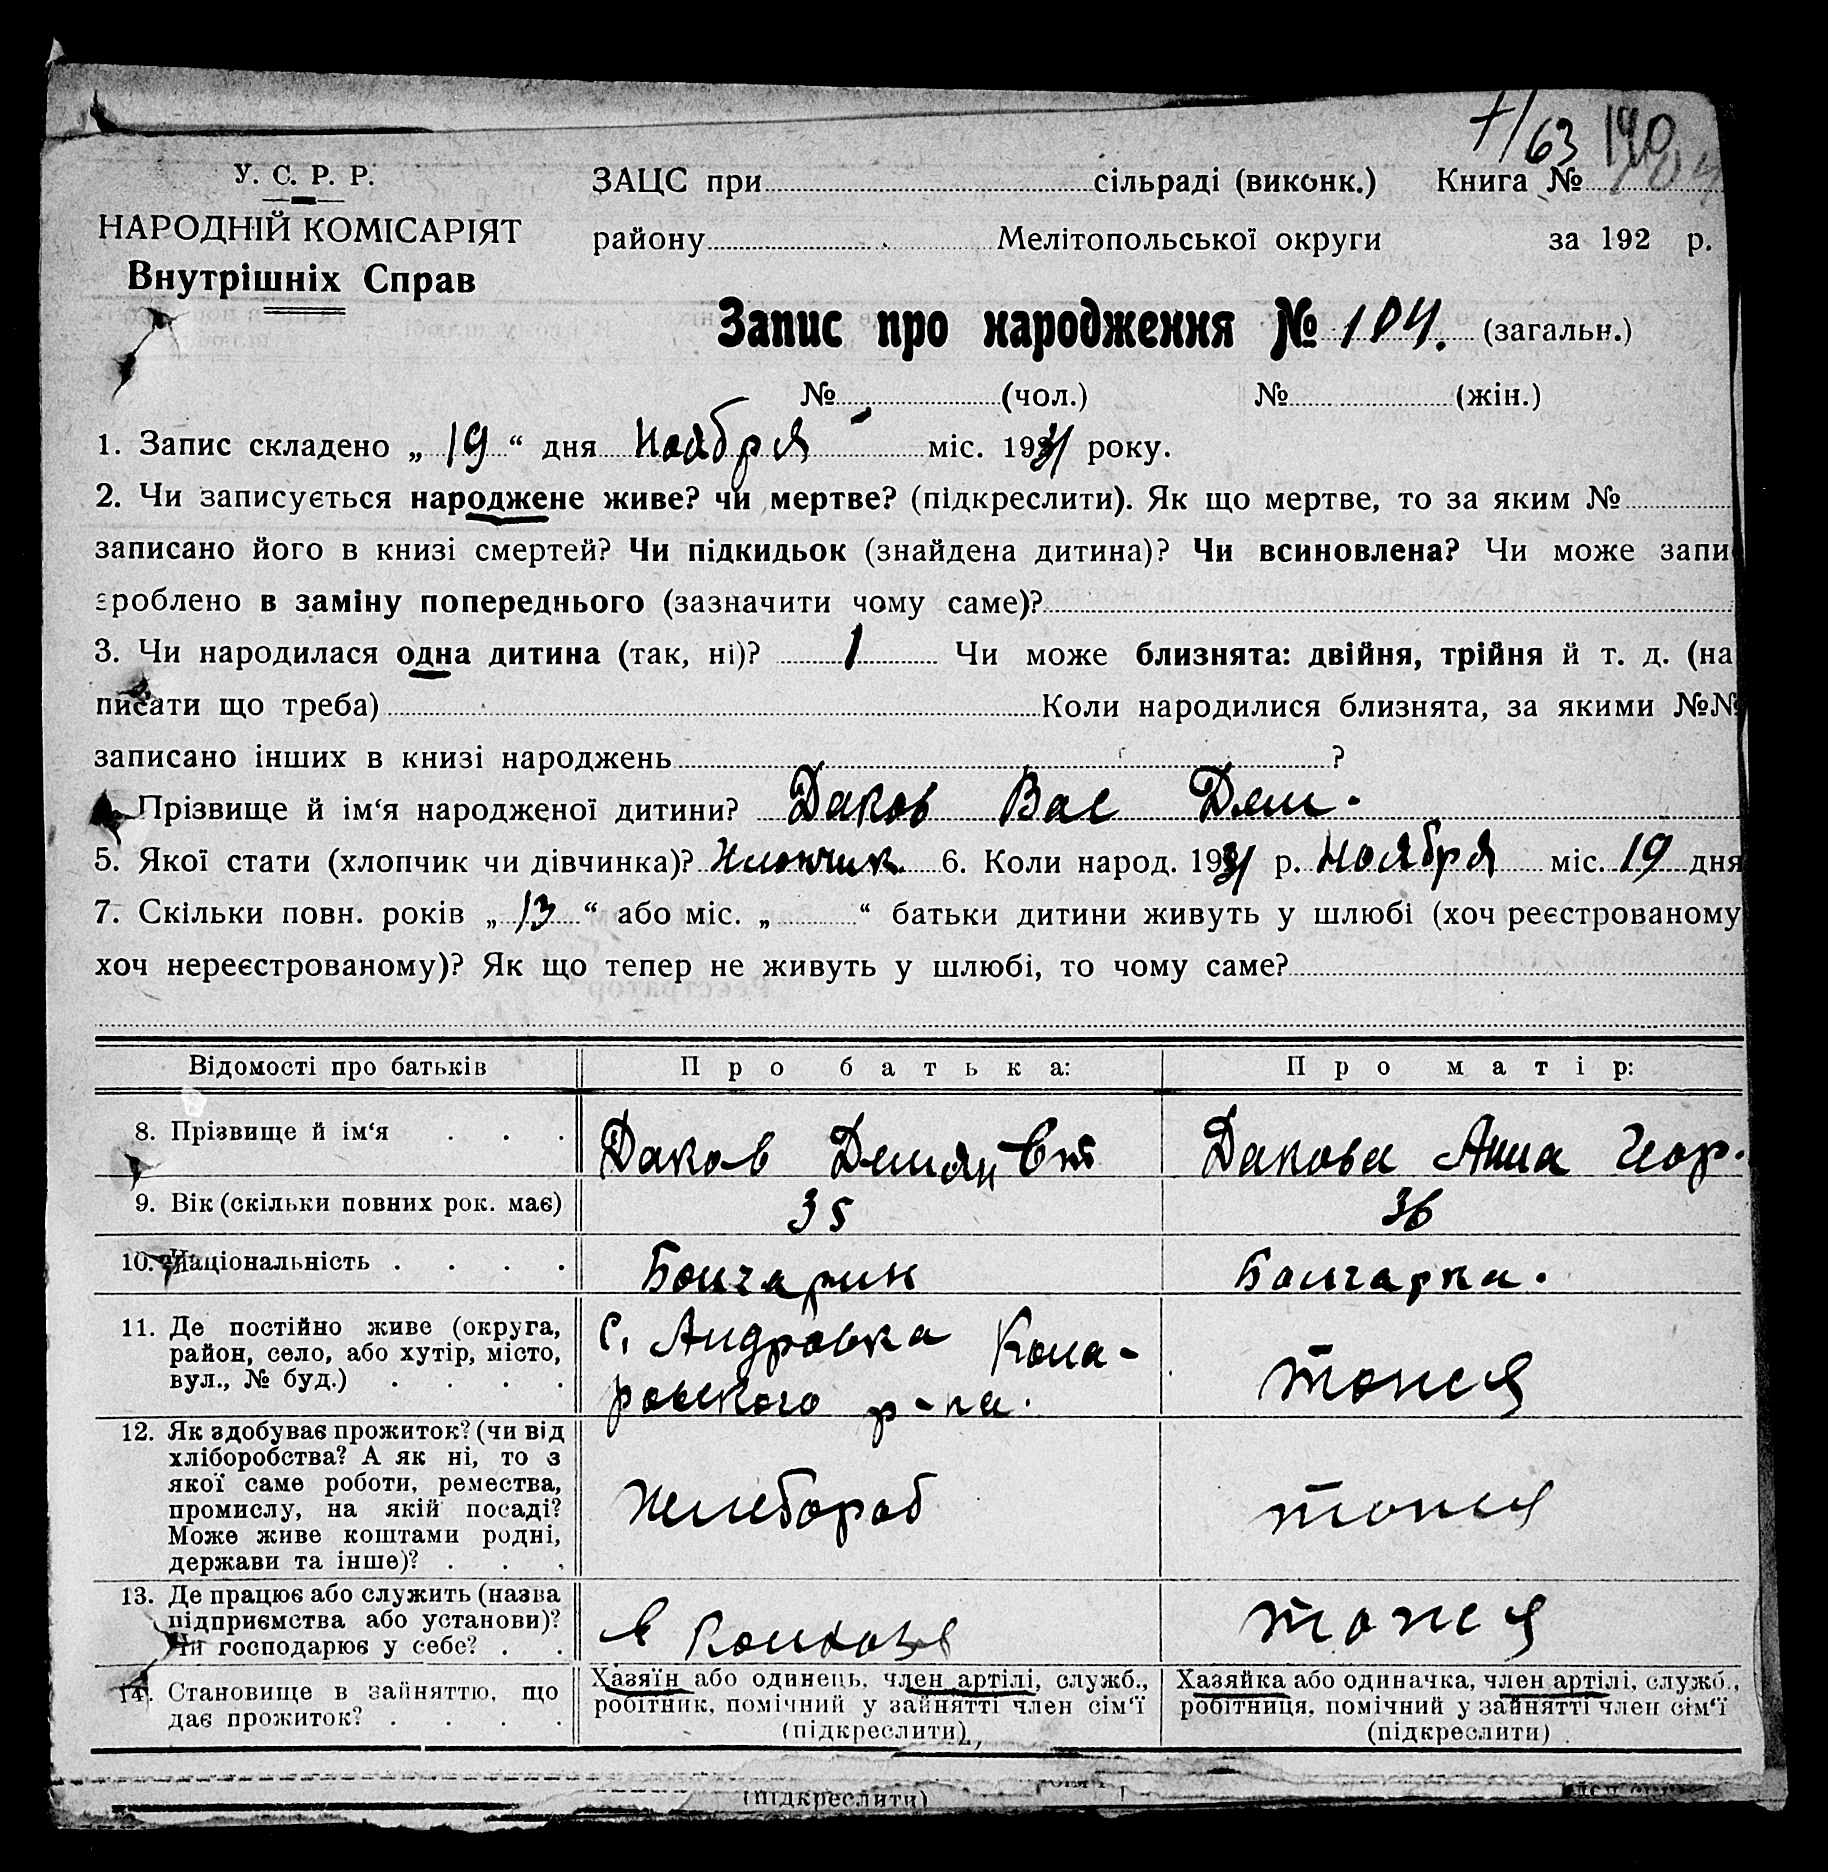 7/63 190
У. С. Р. Р.
НАРОДНІЙ КОМІСАРІЯТ
Внутрішніх Справ
ЗАЦС при сільраді (виконк.) Книга № 104
району Мелітопольської округи за 192 р.
Запис про народження № 104. (загальн.)
№ (чол.) № (жін.)
1. Запис складено „19“ дня Ноября міс. 1931 року.
2. Чи записується народжене живе? чи мертве? (підкреслити). Як що мертве, то за яким №
записано його в книзі смертей? Чи підкидьок (знайдена дитина)? Чи всиновлена? Чи може запи
зроблено в заміну попереднього (зазначити чому саме)?
3. Чи народилася одна дитина (так, ні)? 1 Чи може близнята: двійня, трійня й т. д. (на
писати що треба) Коли народилися близнята, за якими №№
записано інших в книзі народжень ?
Прізвище й ім‘я народженої дитини? Даков Вас Дем.
5. Якої стати (хлопчик чи дівчинка)? Хлопчик 6. Коли народ. 1931 р. ноября міс. 19 дня
7. Скільки повн. років „13“ або міс. „ “ батьки дитини живуть у шлюбі (хоч реєстрованому
хоч нереєстрованому)? Як що тепер не живуть у шлюбі, то чому саме?
Відомості про батьків Про батька: Про матір:
8. Прізвище й ім‘я . . . Даков Демян Дакова Анна Геор.
9. Вік (скільки повних рок. має) 35 36
10. Національність . . . . Болгарин Болгарка.
11. Де постійно живе (округа,
район, село, або хутір, місто,
вул., № буд.) . . . .
С. Андровка Кола-
ровского р-на.
тоже
12. Як здобуває прожиток? (чи від
хліборобства? А як ні, то з
якої саме роботи, ремества,
промислу, на якій посаді?
Може живе коштами родні,
держави та інше)? . . .
Хлебороб
тоже
13. Де працює або служить (назва
підприємства або установи)?
Чи господарює у себе? . .
в колхозе
тоже
14. Становище в зайняттю, що
дає прожиток? . . . .
Хазяїн або одинець, член артілі, служб.,
робітник, помічний у зайнятті член сім‘ї
(підкреслити)
Хазяйка або одиначка, член артілі, служб.,
робітниця, помічний у зайнятті член сім‘ї
(підкреслити)
(підкреслити)